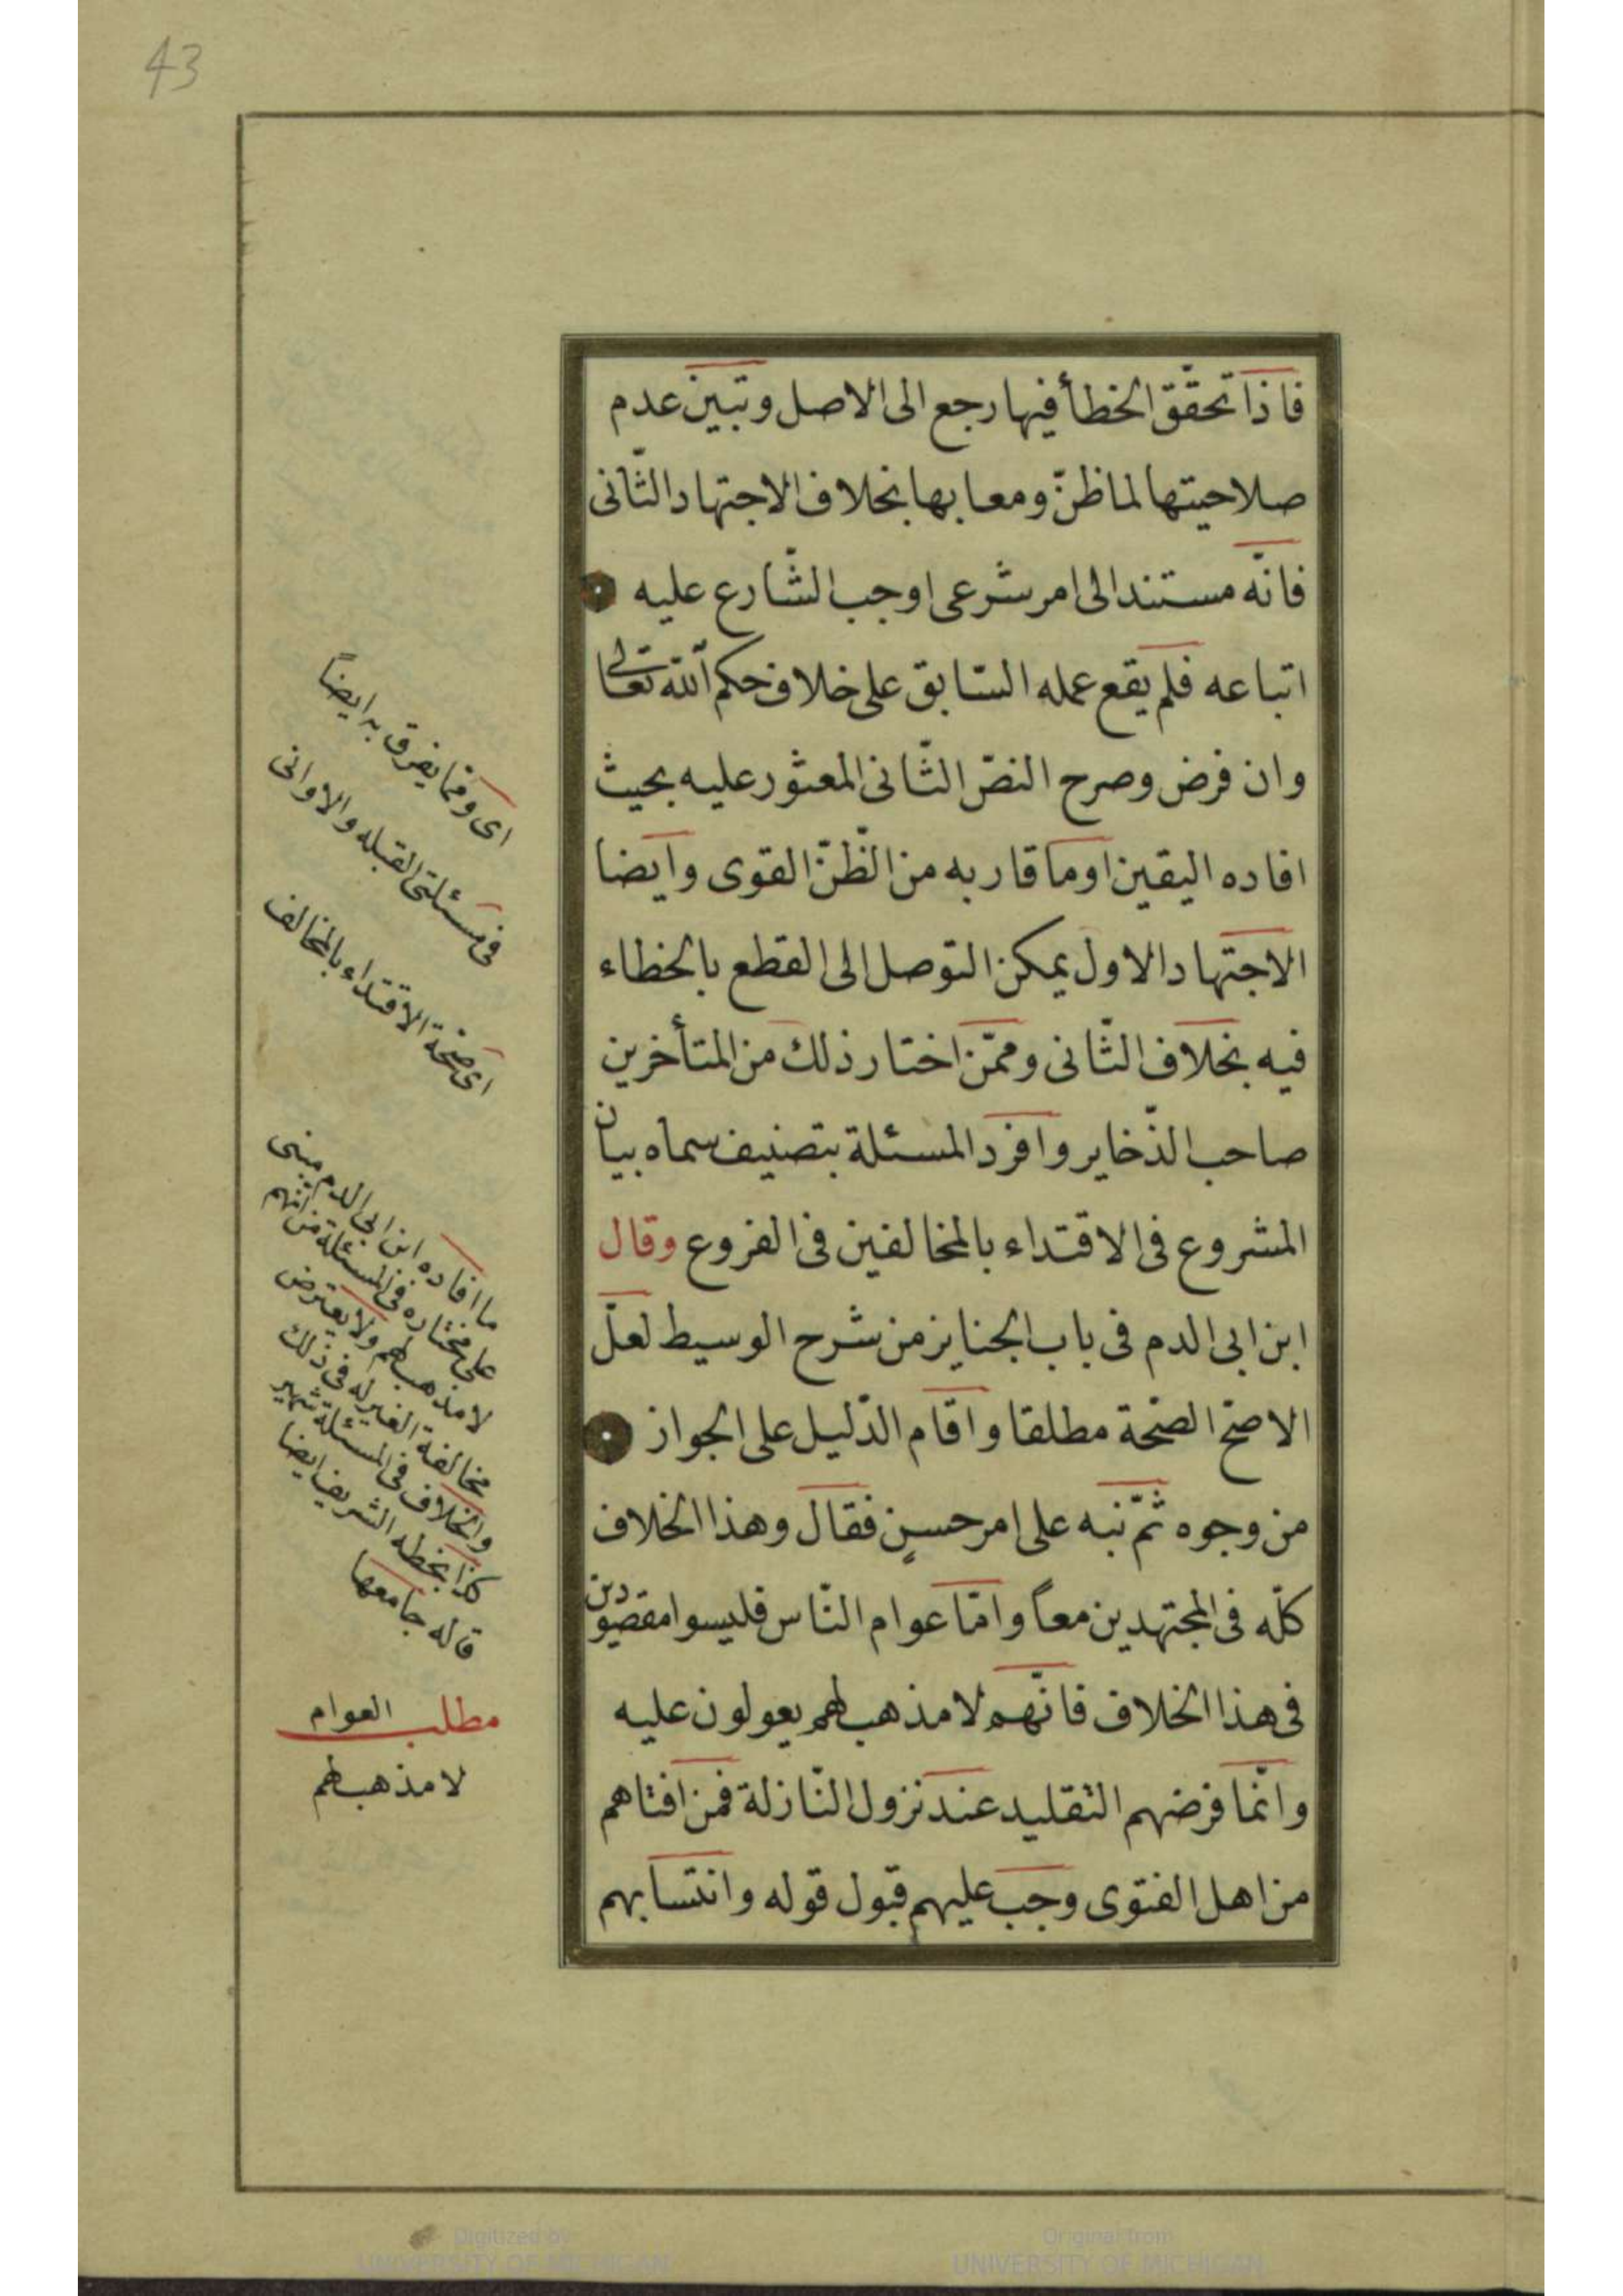 43
فاذا تحقّق الخطأ فيها رجع الى الاصل وتبيّن عدم
صلاحيتها لما ظنّ ومعا بها بخلاف الاجتهاد الثّانى
فانّه مستند الى امر شرعى اوجب الشّارع عليه
اتباعه فلم يقع عمله السّابق على خلاف حكم اللّه تعالى
وان فرض وصرح النصّ الثّانى المعثور عليه بحيث
افاده اليقين او ما قاربه من الظّنّ القوى وايضا
الاجتهاد الاول يمكن التوصل الى القطع بالخطاء
فيه بخلاف الثّانى وممّن اختار ذلك من المتأخرين
صاحب الذّخاير وافرد المسئلة بتصنيف سماه بيان
المشروع فى الاقتداء بالمخالفين فى الفروع وقال
ابن ابى الدم فى باب الجنايز من شرح الوسيط لعلّ
الاصحّ الصّحة مطلقا واقام الدّليل على الجواز
من وجوه ثمّ نبه على امر حسنٍ فقال وهذا الخلاف
كلّه فى المجتهدين معاً وامّا عوام النّاس فليسوا مقصودين
فى هذا الخلاف فانّهم لا مذهب لهم يعولون عليه
وانّما فرضهم التقليد عند نزول النّازلة فمن افتاهم
من اهل الفتوى وجب عليهم قبول قوله وانتسابهم
اى وممّا يفرق به ايضاً
فى مسئلتى القبله والاوانى
اى صحّة الاقتداء بالمخالف
ما افاده ابن ابى الدم مبنى
على مختاره فى المسئلة من انهم
لا مذهب لهم ولا يعترض
مخالفة الغير له فى ذلك
والخلاف فى المسئلة شهير
كذا بخطه الشريف ايضا
قاله جامعها
مطلب العوام
لا مذهب لهم
Digitized by
UNIVERSITY OF MICHIGAN
Original from
UNIVERSITY OF MICHIGAN